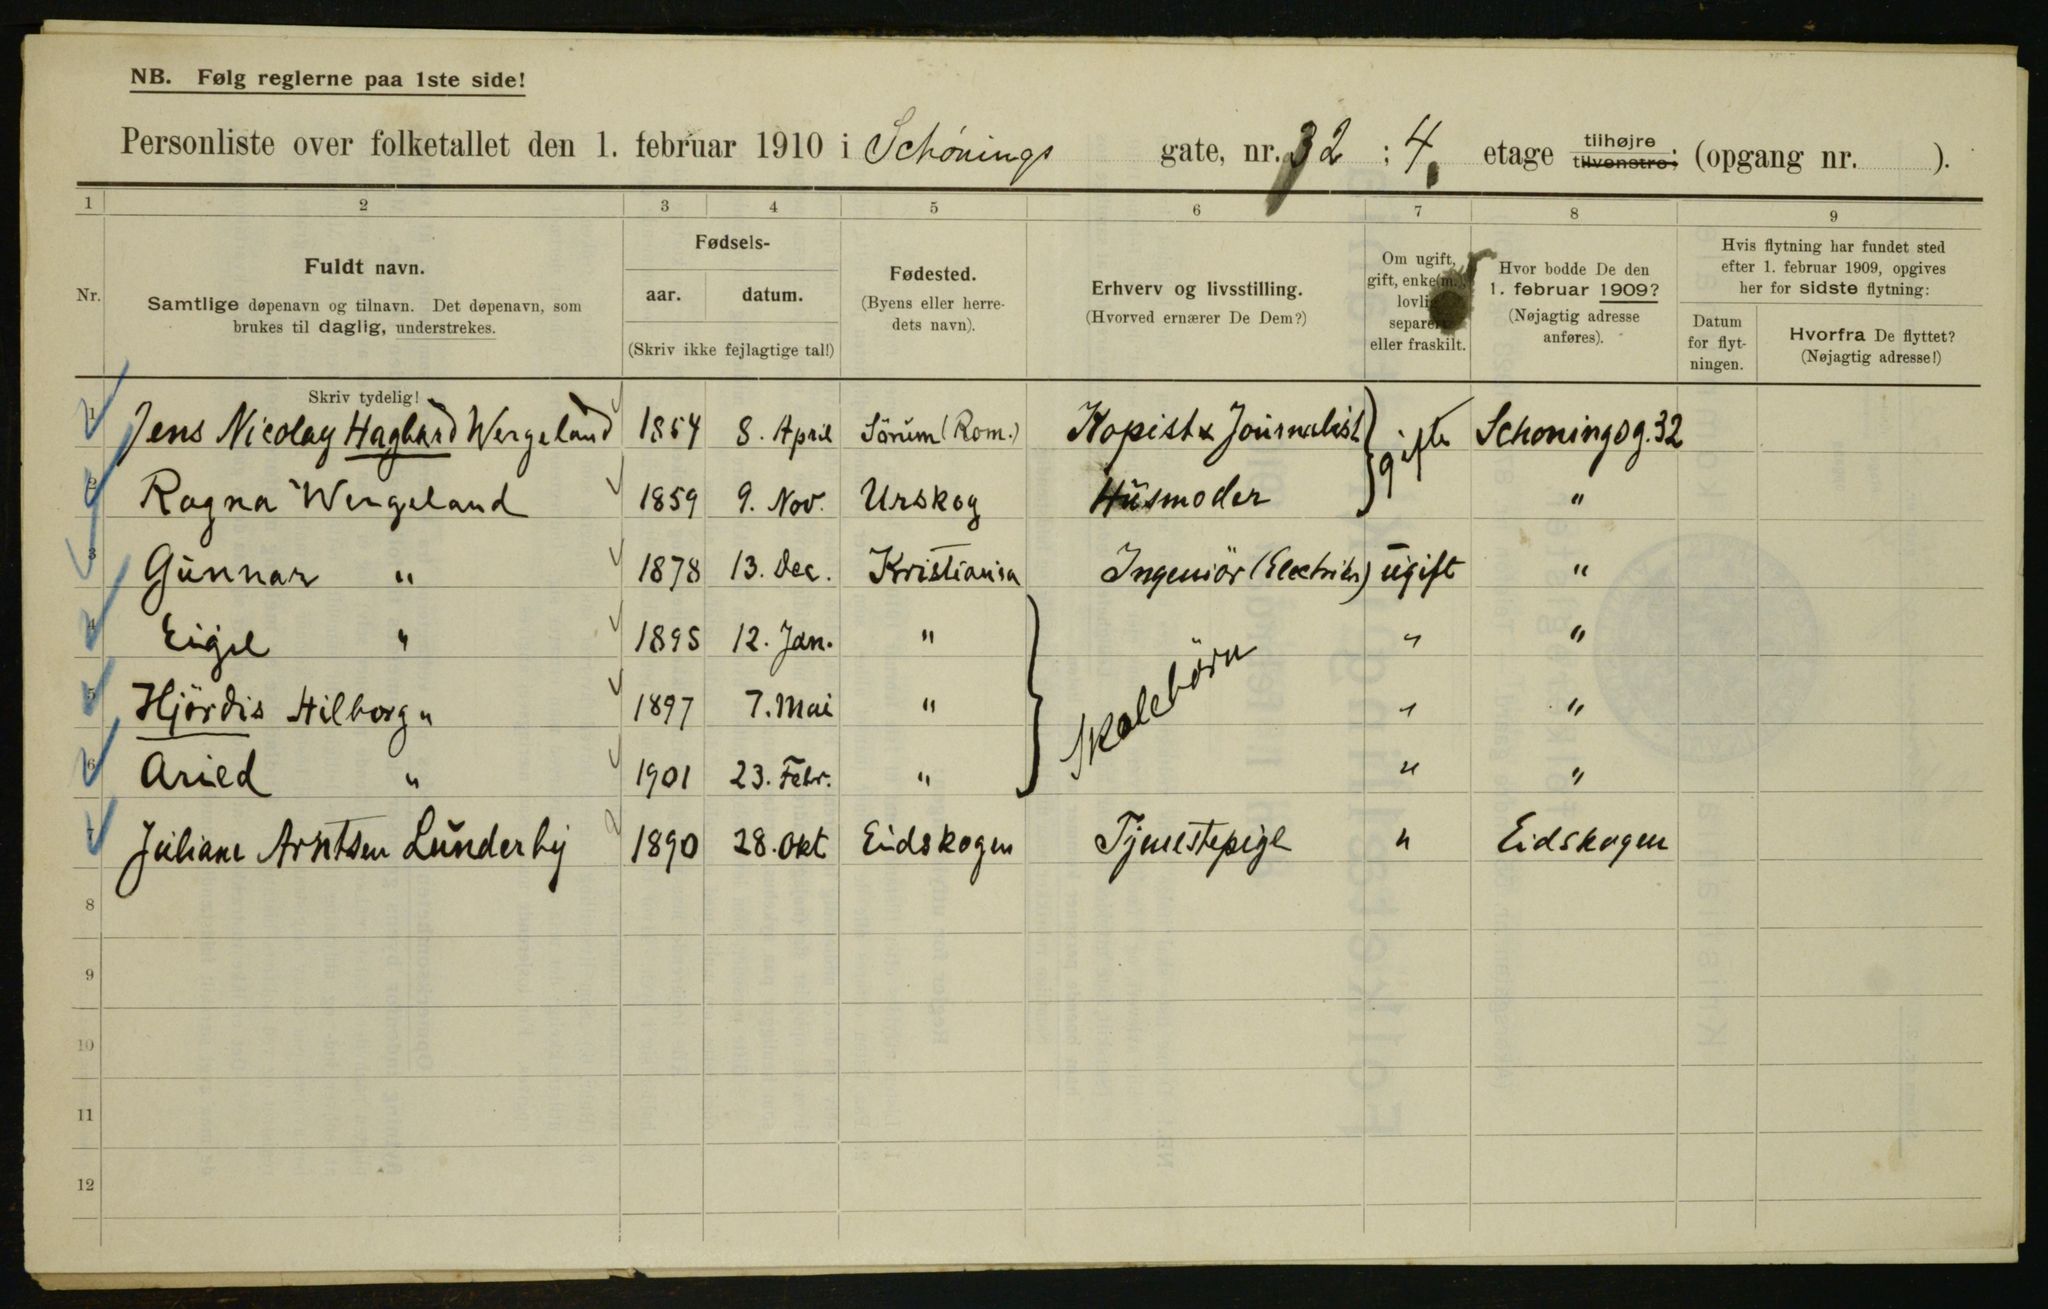 NB. Følg reglerne paa 1ste side!
Personliste over folketallet den 1. februar 1910 i Schønings gate, nr. 32 ; 4. etage tilhøjre tilvenstre; (opgang nr. ).
1 2 3 4 5 6 7 8 9
Nr.
Fuldt navn.
Samtlige døpenavn og tilnavn. Det døpenavn, som
brukes til daglig, understrekes.
Fødsels-
aar. datum.
(Skriv ikke fejlagtige tal!)
Fødested.
(Byens eller herre-
dets navn).
Erhverv og livsstilling.
(Hvorved ernærer De Dem?)
Om ugift,
gift, enke(m.),
lovlig
separert
eller fraskilt.
Hvor bodde De den
1. februar 1909?
(Nøjagtig adresse
anføres).
Hvis flytning har fundet sted
efter 1. februar 1909, opgives
her for sidste flytning:
Datum
for flyt-
ningen.
Hvorfra De flyttet?
(Nøjagtig adresse!)
Skriv tydelig!
1 Jens Nicolay Hagbard Wergeland 1854 8. April Sörum (Rom.) Kopist & Journalist } gifte Schoningsg. 32
2 Ragna Wergeland 1859 9. Nov. Urskog Husmoder "
3 Gunnar " 1878 13. Dec. Kristiania Ingeniör (Elektriker) ugift "
4 Eigil " 1895 12. Jan. " } Skolebörn " "
5 Hjördis Hilborg " 1897 7. Mai " " "
6 Arild " 1901 23. Febr. " " "
7 Juliane Arntsen Lunderby 1890 28. Okt Eidskogen Tjenestepige " Eidskogen
8
9
10
11
12